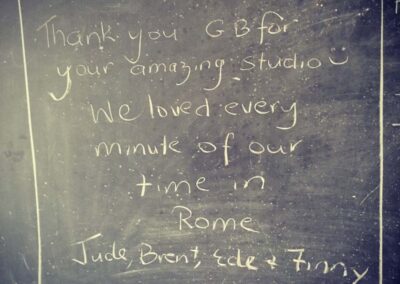 Thank you GB for
your amazing studio
We loved every
minute of our
time in
Rome
Jude, Brent, Ede + Finny